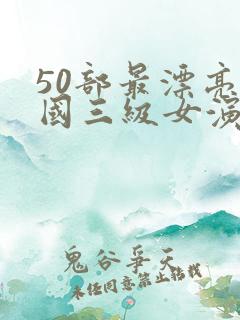 50部最漂亮
國三級女演
鬼谷爭天
未经同意禁止转载